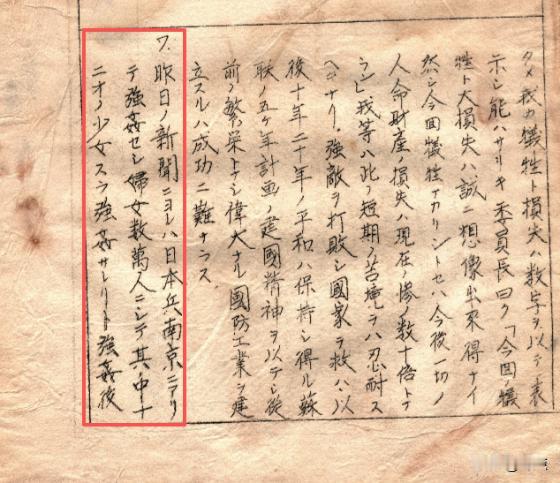 タメ我カ犠牲ト損失ハ数字ヲ以テ表
示シ能ハサリキ委員長曰ク「今回ノ犠
牲ト大損失ハ誠ニ想像出来得ナイ
然シ今回犠牲ナカリシトセハ今後一切ノ
人命財産ノ損失ハ現在ノ惨ノ数十倍トナ
ラン我等ハ此ノ短期ノ苦痛ヲハ忍耐ス
ヘキナリ強敵ヲ打敗シ國家ヲ救ハ以
後十年二十年ノ平和ハ保持シ得ル蘇
联ノ五ケ年計画ノ建國精神ヲ以テシ従
前ノ繁栄トナシ偉大ナル國防工業ヲ建
立スルハ成功ニ難ナラス
7. 昨日ノ新聞ニヨレハ日本兵南京ニアリ
テ強姦セシ婦女数萬人ニシテ其中ナ
ニオノ少女スラ強姦サレリト強姦後